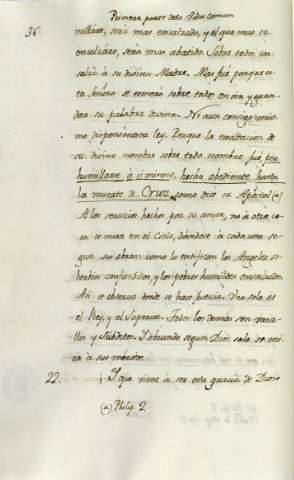 Primera parte de la Vida comun
36.
millàre, sera mas ensalzado, y el que mas se
ensalzáre, sera mas abatido. Sobre todos en-
salzó à su divina Madre. Mas fué porque es-
ta Señora se esmeró sobre todos en oir y guar-
dar su palabra divina. Ni aun consigo mis-
mo dispensò esta ley. Porque la exaltacion de
su divino nombre sobre todo nombre, fué por
humillarse à si mismo, hecho obediente hasta
la muerte de Cruz, como dice su Apostol (a)
A los servicios hechos por su amor, no à otra co-
sa se mira en el Cielo, dandose à cada uno se-
gun sus obras: como lo testifican los Angeles so-
berbios confundidos, y los pobres humildes ensalzados.
Asi se observa donde se hace Justicia. Uno solo es
el Rey, y el Superior. Todos los demas son vasa-
llos y Subditos. Y obrando segun Dios solo se mi-
ra à sus meritos.
22. Y que viene à ser esta gracia de Dios
(a) Philip 2